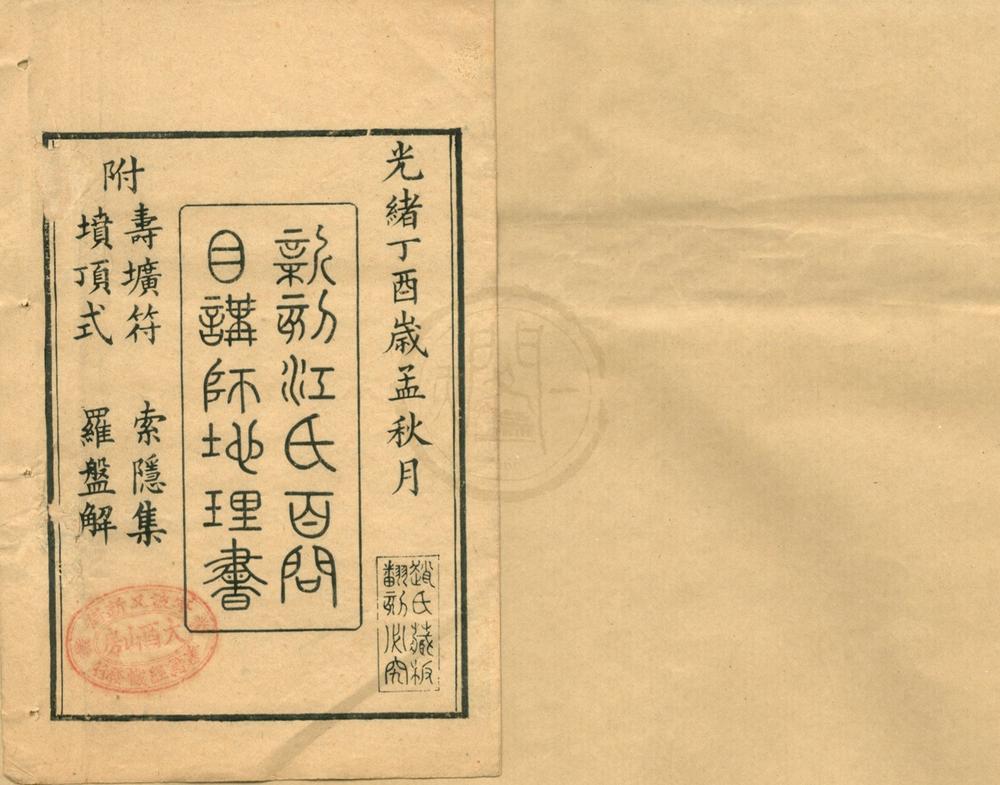 光緒丁酉歲孟秋月
新刻江氏百問
目講師地理書
附
壽壙符 索隱集
墳頂式 羅盤解
趙氏藏板
翻刻必究
大酉山房